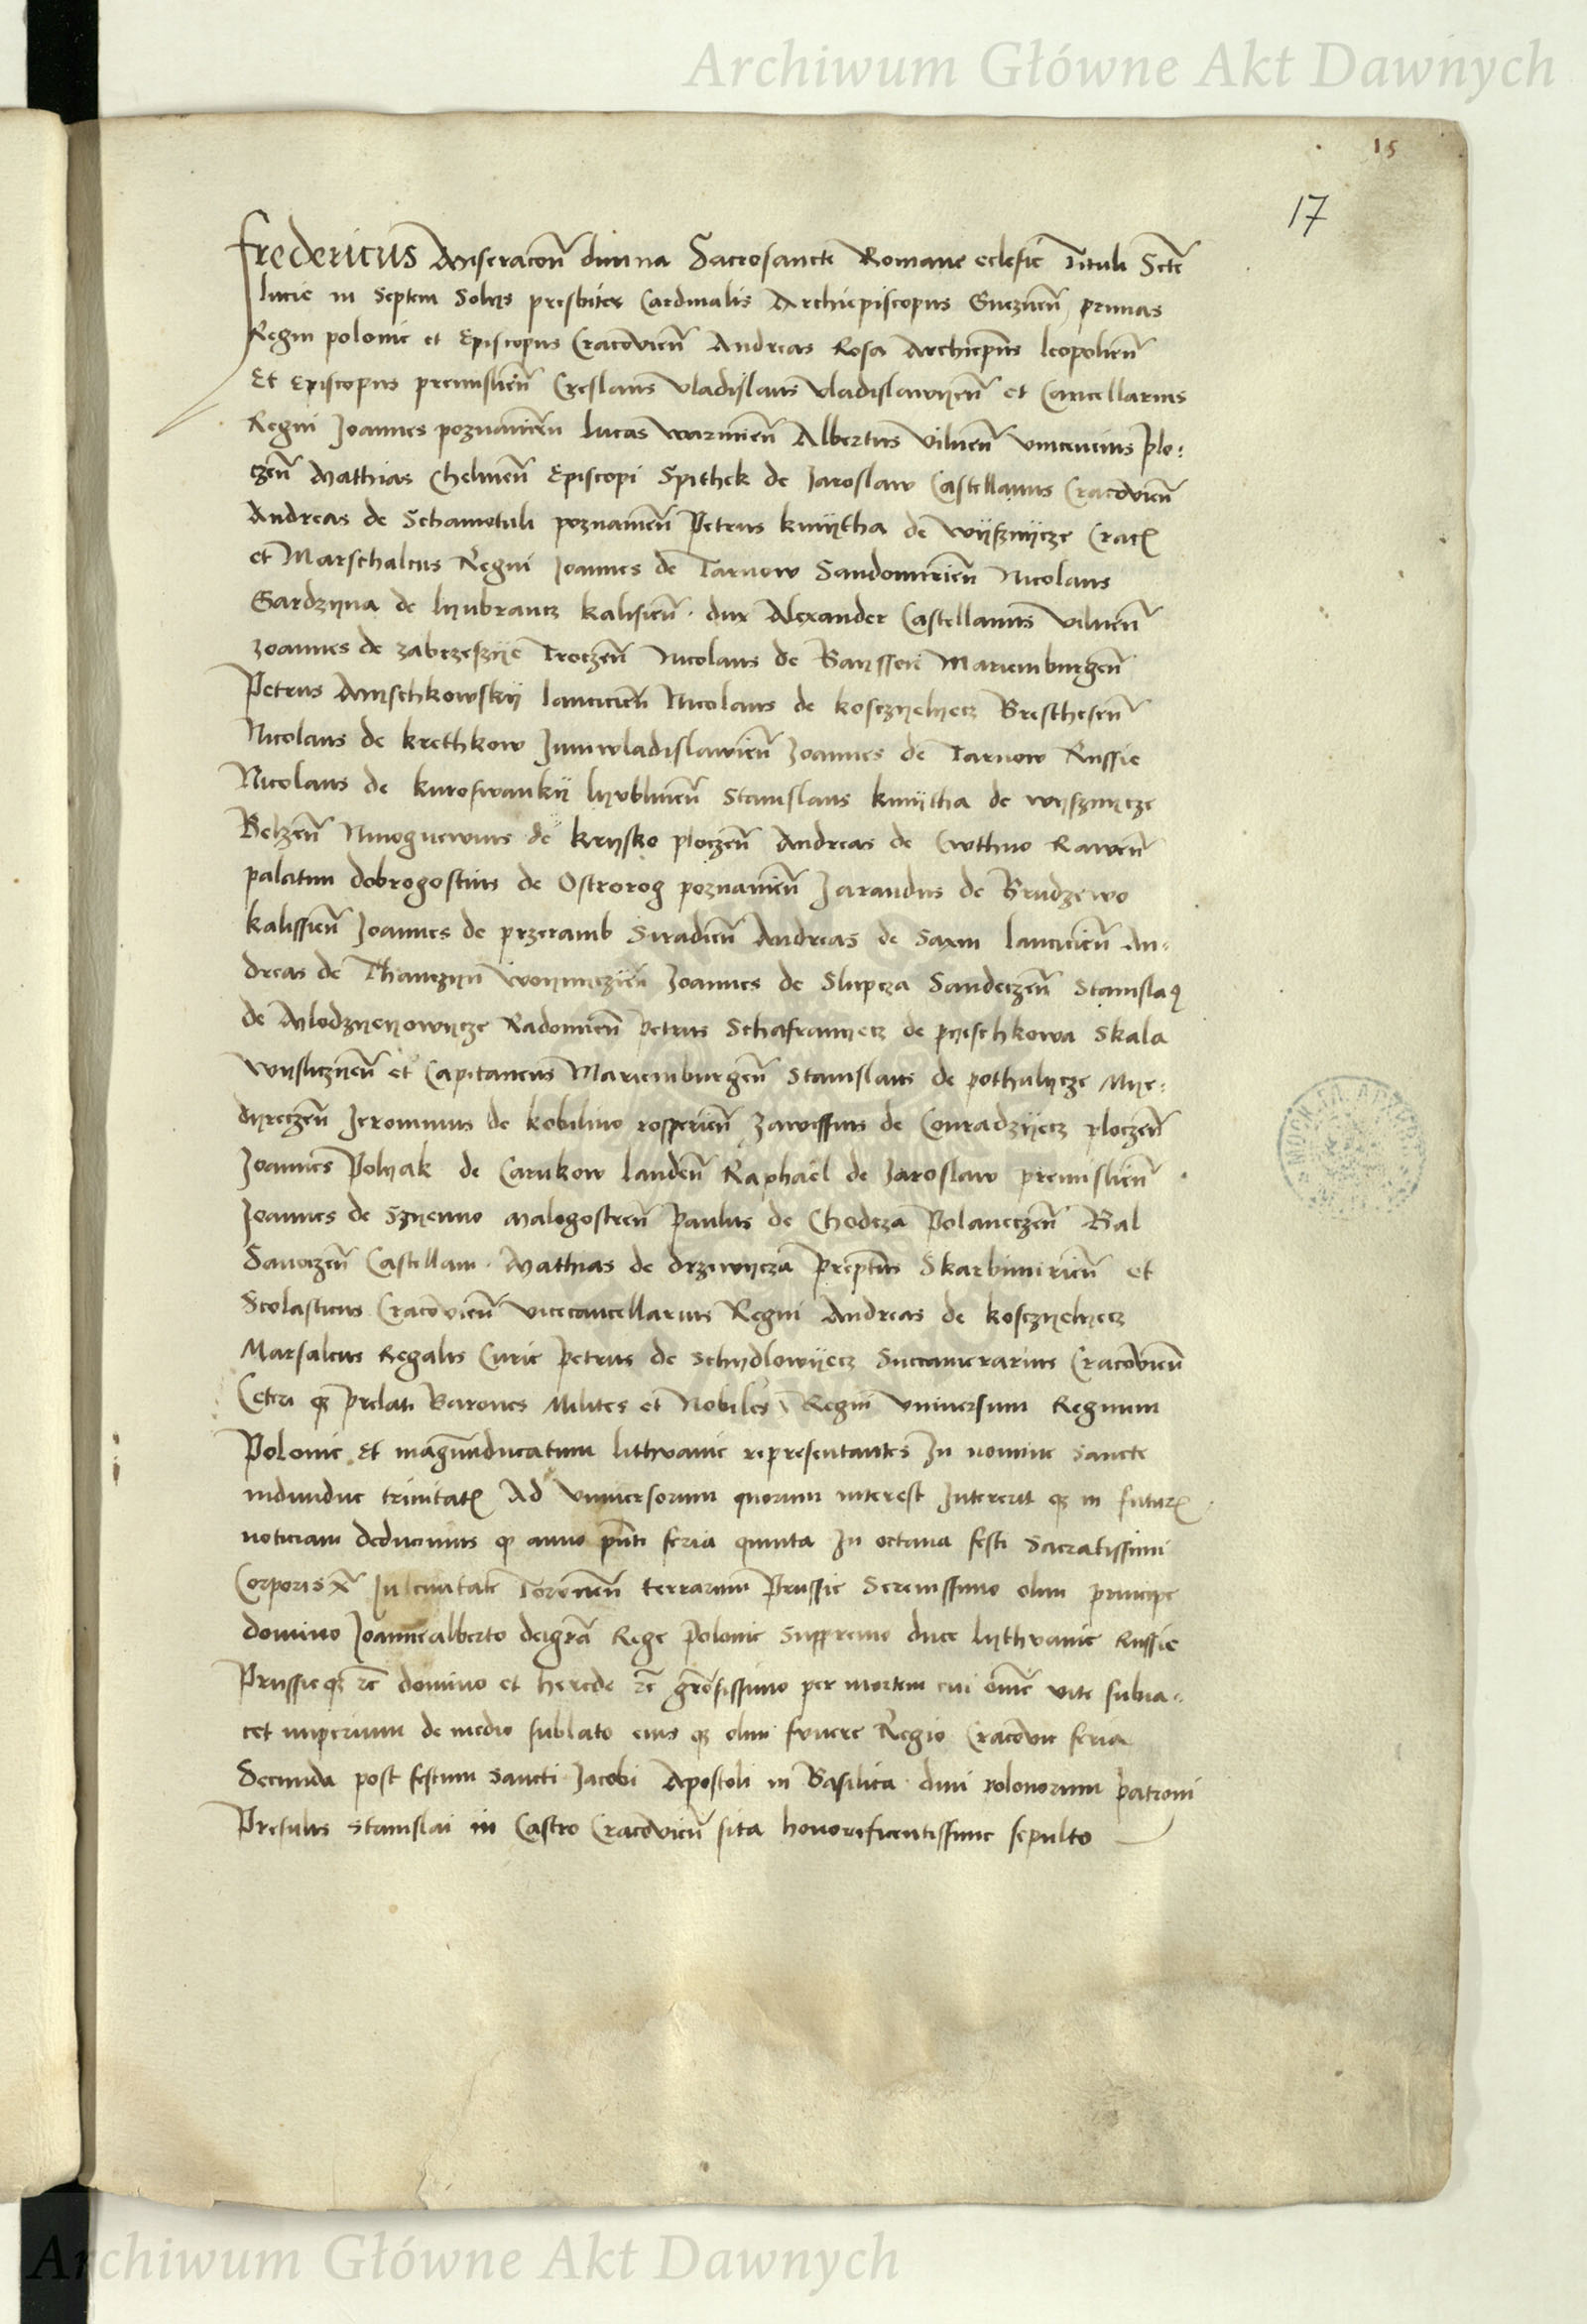 Archiwum Główne Akt Dawnych
15
17
Fredericus Miseracoñ divina Sacrosancte Romane eclesie Tituli Scte
lucie in Septem Solijs presbiter Cardinalis Archiepiscopus Gneznen̄ primas
Regni polonie et Episcopus Cracovien̄ Andreas Rosa Archiep̄us leopolien̄
Et Episcopus premislien̄ Creslaus vladislaus vladislawyen̄ et Cancellarius
Regni Joannes poznanien̄ lucas warmien̄ Albertus vilnen̄ vincencius plo:
czen̄ Mathias Chelmen̄ Episcopi Spithek de Jaroslaw Castellanus Cracovien̄
Andreas de Schamotuli poznanien̄ Petrus kmÿtha de wÿsznÿcze Crac
et Marschalcus Regni Joannes de Tarnow Sandomirien̄ Nicolaus
Gardzyna de lyubrancz kalisien̄ dux Alexander Castellanus vilnen̄
Joannes de zabrzeszÿe Troczen̄ Nicolaus de Baÿssen Mariemburgen̄
Petrus Mÿschkowskÿ lancicien̄ Nicolaus de kosczyelyecz Bresthesen̄
Nicolaus de krethkow Juniwladislawien̄ Joannes de Tarnow Russie
Nicolaus de kuroswankÿ lyublinen̄ Stanislaus kmÿtha de wysznycze
Belzen̄ Ninognewius de krÿsko ploczen̄ Andreas de Cwthno Rawen̄
palatini dobrogostius de Ostrorog poznanien̄ Jarandus de Brudzewo
kalissien̄ Joannes de przeramb Siradien̄ Andreas de Saxin lancicien̄ An:
dreas de Thanczyn woyniczien̄ Joannes de Slupcza Sandeczen̄ Stanislaꝯ
de Mlodzyeyowycze Radomien̄ petrus Schafranyecz de pyeschkowa Skala
wÿsliczyen̄ et Capitaneus Mariemburgen̄ Stanislaus de pothulycze Mye:
dzyreczen̄ Jeronimus de kobilino rosperien̄ Zawissius de Conradzyecz ploczen̄
Joannes Polyak de Carnkow landen̄ Raphael de Jaroslaw premislien̄
Joannes de Szyenno Malogostien̄ Paulus de Chodcza Polaneczen̄ Bal
Sanoczen̄ Castellani Mathias de drzewycza prep̄tus Skarbimirien̄ et
Scolasticus Cracovien̄ vicecancellarius Regni Andreas de kosczyelyecz
Marsalcus Regalis Curie petrus de Schydlowÿecz Succamerarius Cracovien̄
Ceteri qꝫ prelati Barones Milites et Nobiles Regni vniversum Regnum
Polonie Et magnunducatum lithvanie representantes In nomine Sancte
indiuidue trinitatꝭ Ad vniuersorum quorum interest Intererit qꝫ in futurꝭ
noticiam deducimus qꝫ anno pn̄ti feria quinta In octava festi Sacratissimi
Corporis Xī In Ciuitate Toronen̄ terrarum Prussie Serenissimo olim principe
domino Joannealberto deigrā Rege Polonie Suppremo duce lythvanie Russie
Prussieqꝫ zc̄ domino et herede zc̄ gr̄osissimo per mortem cui om̄e vite subia:
cet imperium de medio sublato eius qꝫ olim funere Regio Cracovie feria
Secunda post festum Sancti Jacobi Apostoli in Basilica diui polonorum patroni
Presulis Stanislai in Castro Cracovien̄ sita honorificentissime sepulto
Archiwum Główne Akt Dawnych